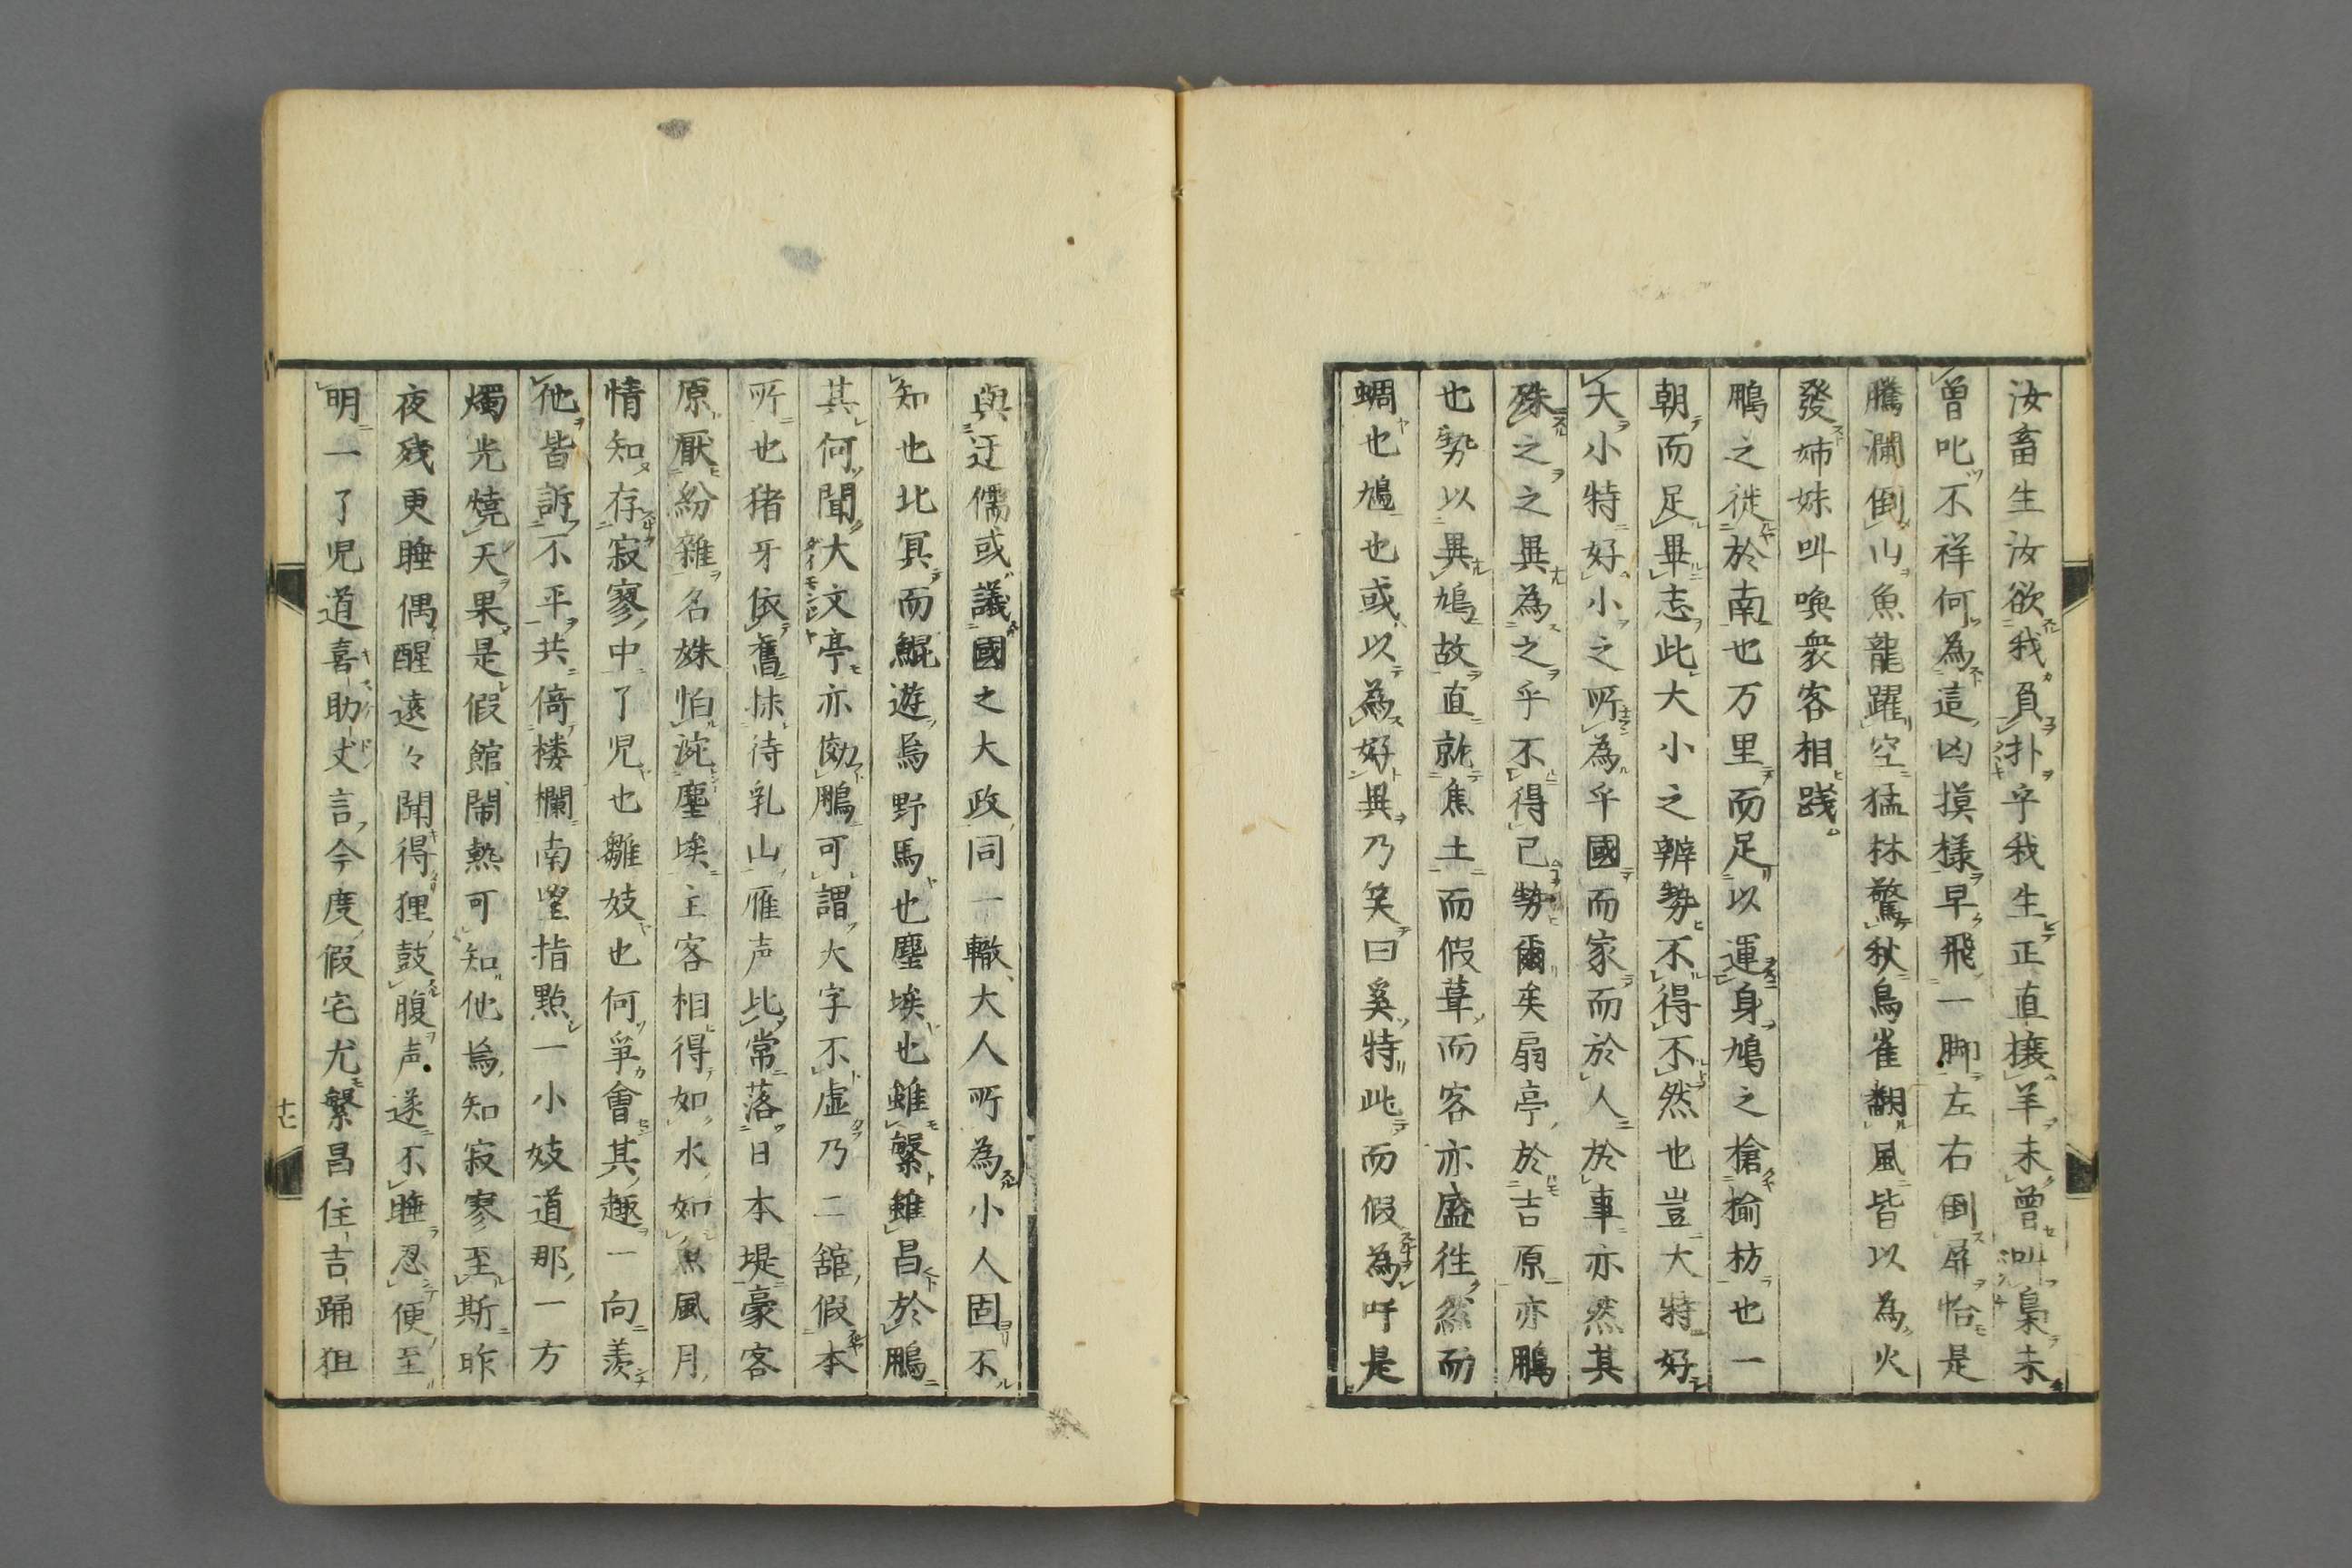 汝畜生汝欲我負扑乎我生正直攘羊未曾叫梟未
曾叱不祥何為這凶摸様早飛一脚左右倒屏恰是
騰瀾倒山魚龍躍空猛林驚秋鳥雀翻風皆以為火
發姉妹叫喚衆客相踐
鵬之徙於南也万里而足以運身鳩之搶揄枋也一
朝而足畢志此大小之辨勢不得不然也豈大特好
大小特好小之所為乎國而家而於人於事亦然其
殊之之異為之乎不得已勢爾矣扇亭於吉原亦鵬
也勢以異鳩故直就焦土而假葺而客亦盛徃然而
蜩也鳩也或以為好異乃笑曰奚特此而假為吁是
與迂儒或議國之大政同一轍大人所為小人固不
知也北冥而鯤遊烏野馬也塵埃也雖繁雖昌於鵬
其何聞大文亭亦傚鵬可謂大字不虛乃二舘假本
所也猪牙依舊抹待乳山雁声比常落日本堤豪客
原厭紛雜名姝怕涴塵埃主客相得如水如魚風月
情知存寂寥中了児也雛妓也何爭會其趣一向羨
他皆訴不平共倚楼欄南望指點一小妓道那一方
燭光燒天果是假館鬧熱可知他烏知寂寥至斯昨
夜残更睡偶醒遠々聞得狸鼓腹声遂不睡忍便至
明一了児道喜助丈言今度假宅尤繁昌住吉踊狙